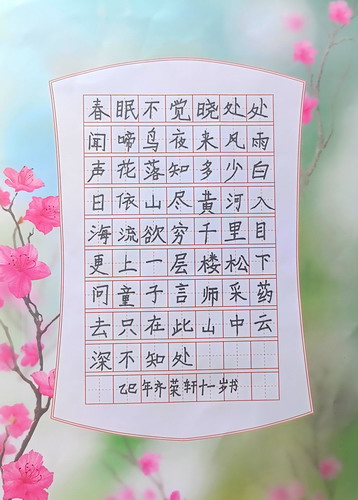 春眠不觉晓处处
闻啼鸟夜来风雨
声花落知多少白
日依山尽黄河入
海流欲穷千里目
更上一层楼松下
问童子言师采药
去只在此山中云
深不知处
乙巳年齐菜轩十一岁书